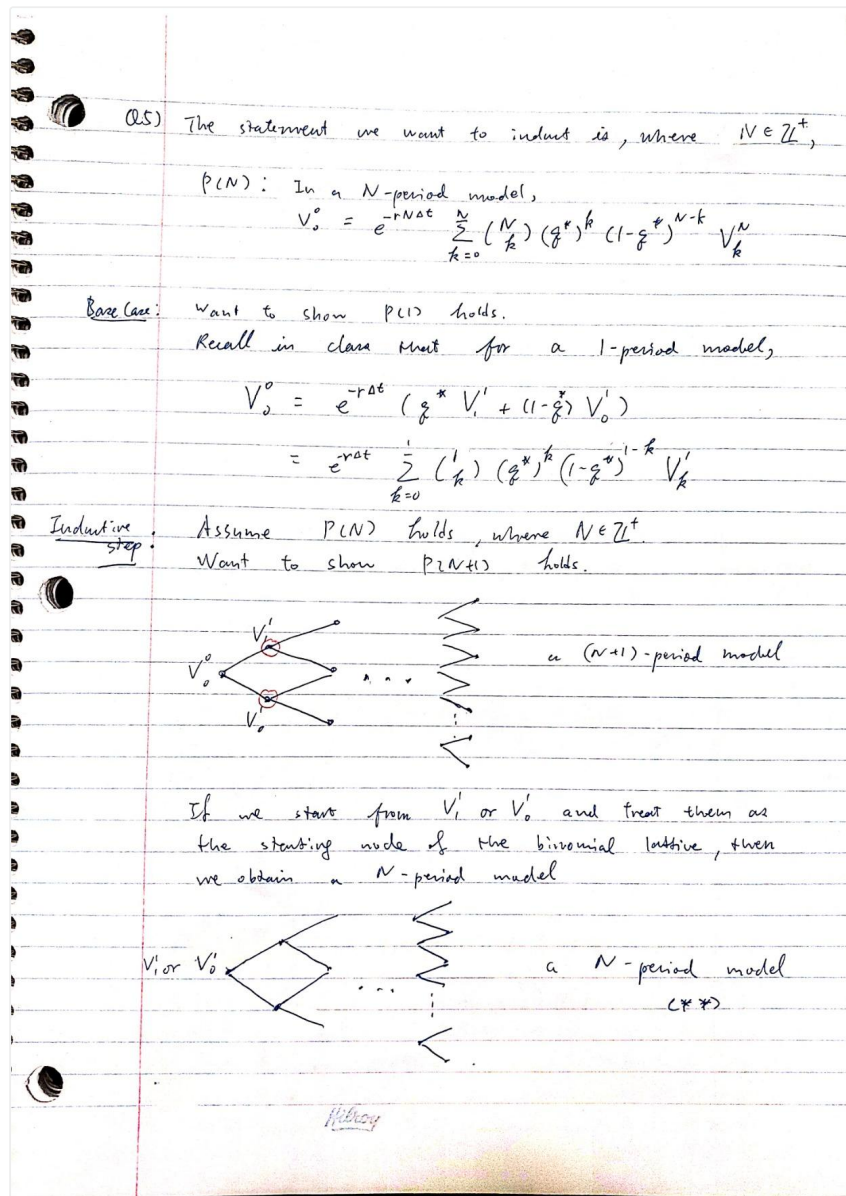 Q5) The statement we want to induct is, where N ∈ ℤ⁺,
P(N): In a N-period model,
V₀⁰ = e^{-rNΔt} Σ_{k=0}^{N} (N k) (q*)^k (1-q*)^{N-k} V_k^N
Base Case: Want to show P(1) holds.
Recall in class that for a 1-period model,
V₀⁰ = e^{-rΔt} (q* V₁¹ + (1-q*) V₀¹)
= e^{-rΔt} Σ_{k=0}^{1} (1 k) (q*)^k (1-q*)^{1-k} V_k^1
Inductive step: Assume P(N) holds, where N ∈ ℤ⁺.
Want to show P(N+1) holds.
V₁¹
V₀⁰ ... a (N+1)-period model
V₀¹
If we start from V₁¹ or V₀¹ and treat them as
the starting node of the binomial lattice, then
we obtain a N-period model
V₁¹ or V₀¹ ... a N-period model
(**)
Hilroy